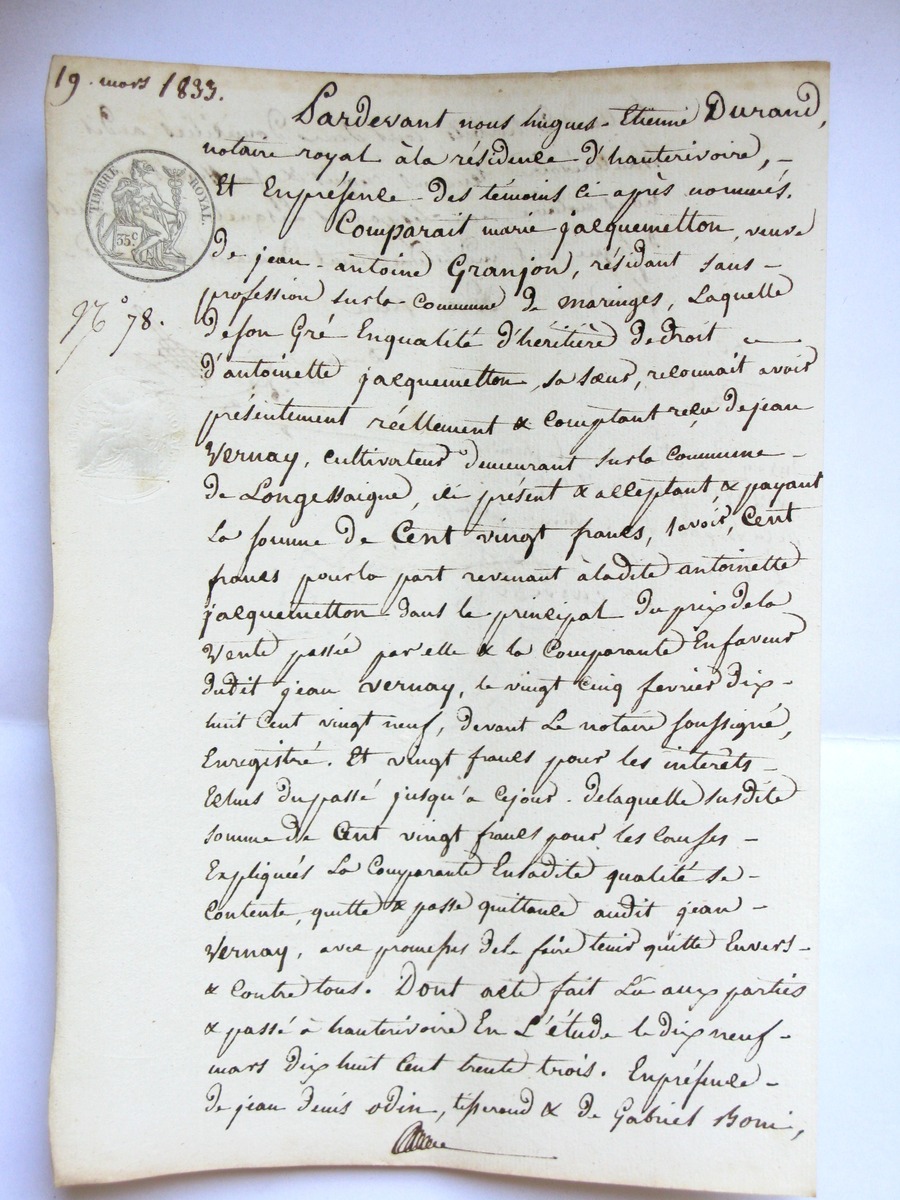 19. mars 1833.
Pardevant nous hugues-Etienne Durand,
notaire royal à la résidence d'hauterivoire, -
Et En présence des témoins ci après nommés.
TIMBRE ROYAL.
35c
Comparait marie jacquemetton, veuve
De jean-antoine Granjon, résidant sans -
profession sur la Commune de maringes, Laquelle
N° 78.
de son Gré En qualité d'héritière De droit
d'antoinette jacquemetton, sa sœur, reconnait avoir
présentement réellement & Comptant reçu de jean
Vernay, cultivateur demeurant sur la Commune -
de Longessaigne, ici présent & acceptant & payant
La somme de Cent vingt francs, savoir, Cent
francs pour la part revenant à ladite antoinette
jacquemetton dans le principal du prix de la
Vente passée par elle & la Comparante En faveur
dudit jean Vernay, le vingt cinq fevrier dix -
huit Cent vingt neuf, devant Le notaire soussigné,
Enregistré. Et vingt francs pour les intérêts -
Echus du passé jusqu'a ce jour. de laquelle susdite
somme de Cent vingt francs pour les causes -
Expliquées La Comparante En sadite qualité se -
Contente, quitte & passe quittance audit jean -
Vernay, avec promesses de le faire tenir quitte Envers -
& Contre tous. Dont acte fait Lu aux parties
& passé à hauterivoire En L'étude le dix neuf -
mars dix huit Cent trente trois. En présence -
de jean Denis odin, tisserand & de Gabriel